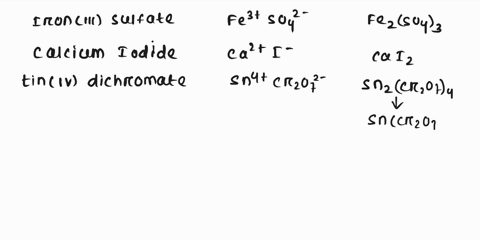 Iron(III) sulfate Fe³⁺ SO₄²⁻ Fe₂(SO₄)₃
Calcium Iodide Ca²⁺ I⁻ CaI₂
tin(IV) dichromate Sn⁴⁺ Cr₂O₇²⁻ Sn₂(Cr₂O₇)₄
↓
Sn(Cr₂O₇